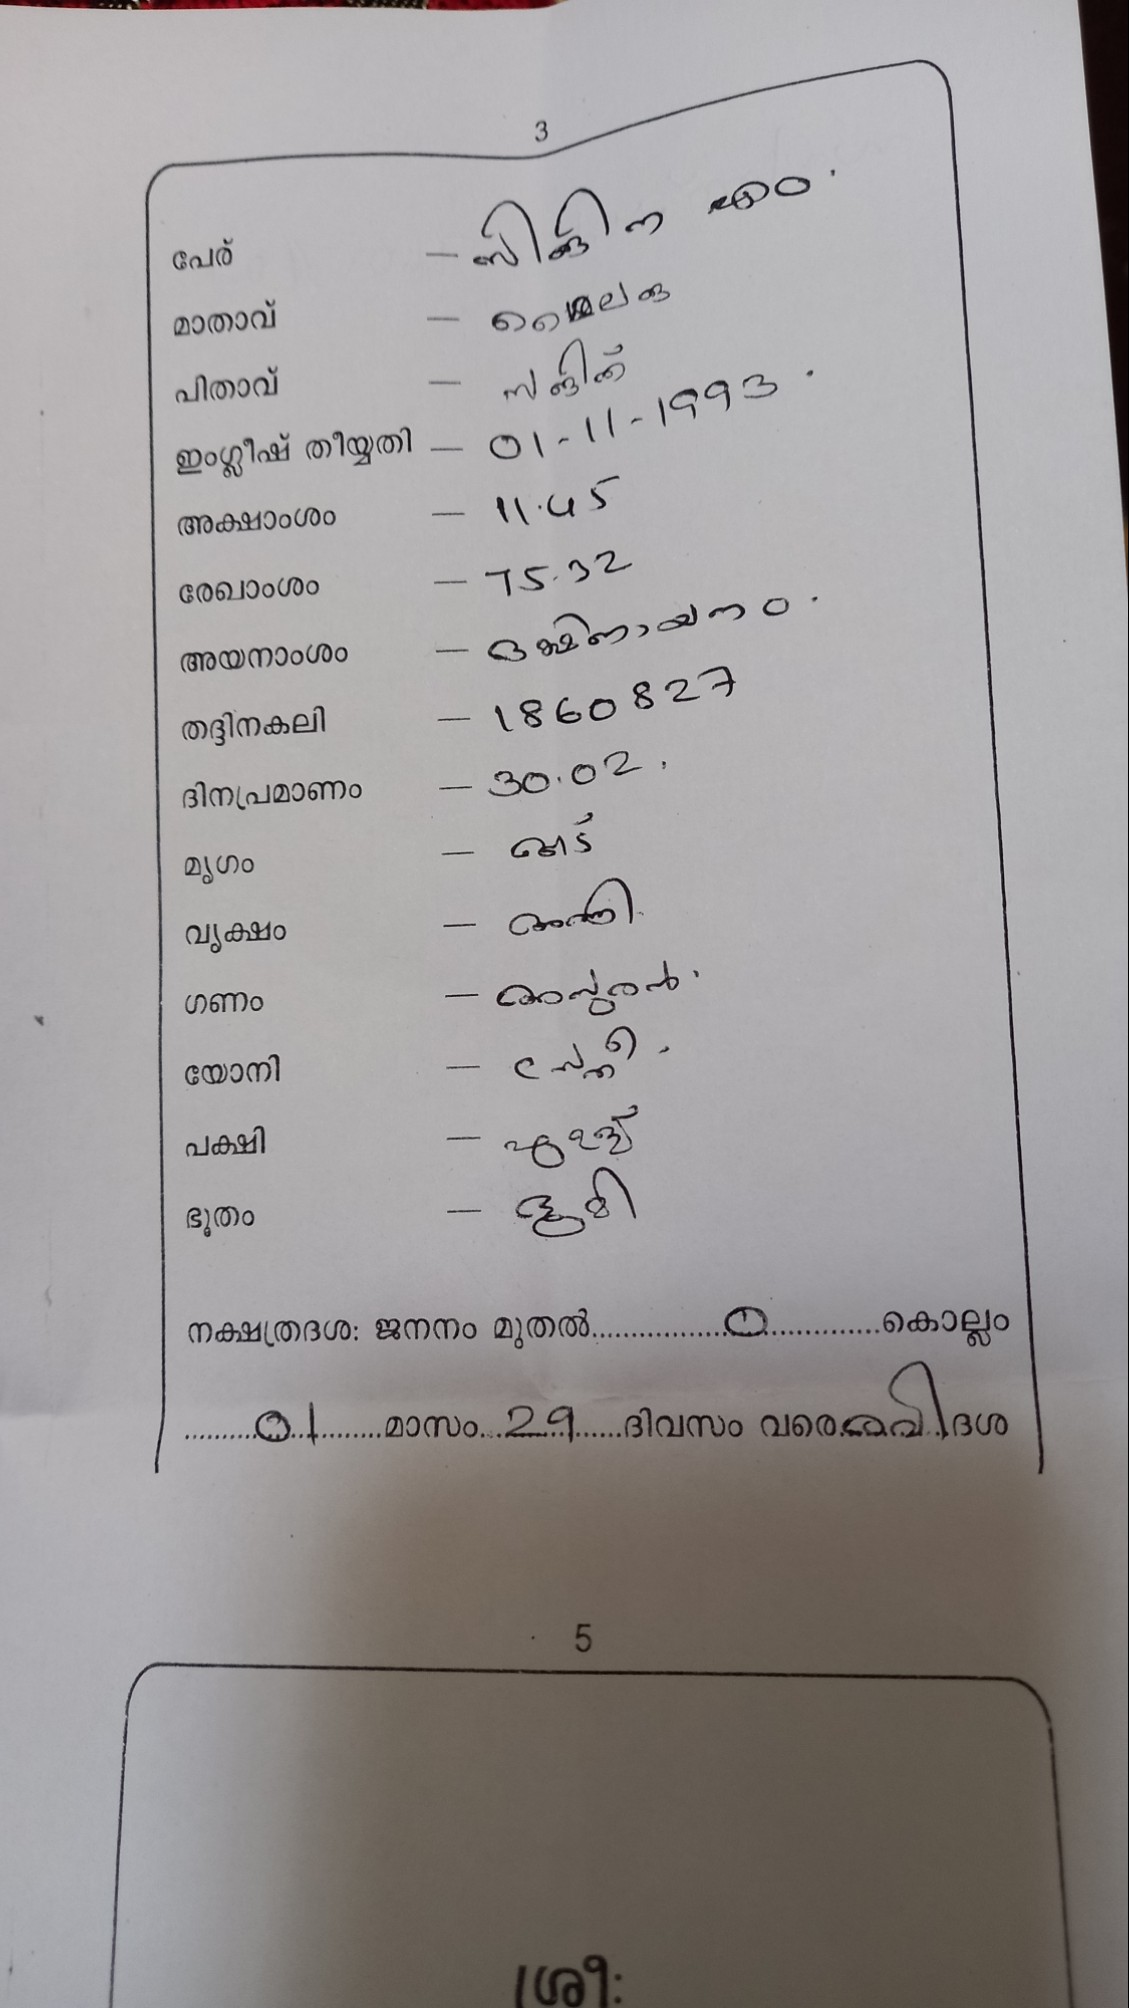 3
പേര് — സിജിന എം.
മാതാവ് — ശൈലജ
പിതാവ് — സജിത്
ഇംഗ്ലീഷ് തീയ്യതി — 01-11-1993.
അക്ഷാംശം — 11.45
രേഖാംശം — 75.32
അയനാംശം — ദക്ഷിണായനം.
തദ്ദിനകലി — 1860827
ദിനപ്രമാണം — 30.02.
മൃഗം — ആട്
വൃക്ഷം — അത്തി.
ഗണം — അസുരൻ.
യോനി — സ്ത്രീ.
പക്ഷി — പുള്ള്
ഭൂതം — ഭൂമി
നക്ഷത്രദശ: ജനനം മുതൽ..................0..............കൊല്ലം
..........01........മാസം...29......ദിവസം വരെ രവി ദശ
5
ശ്രീ: